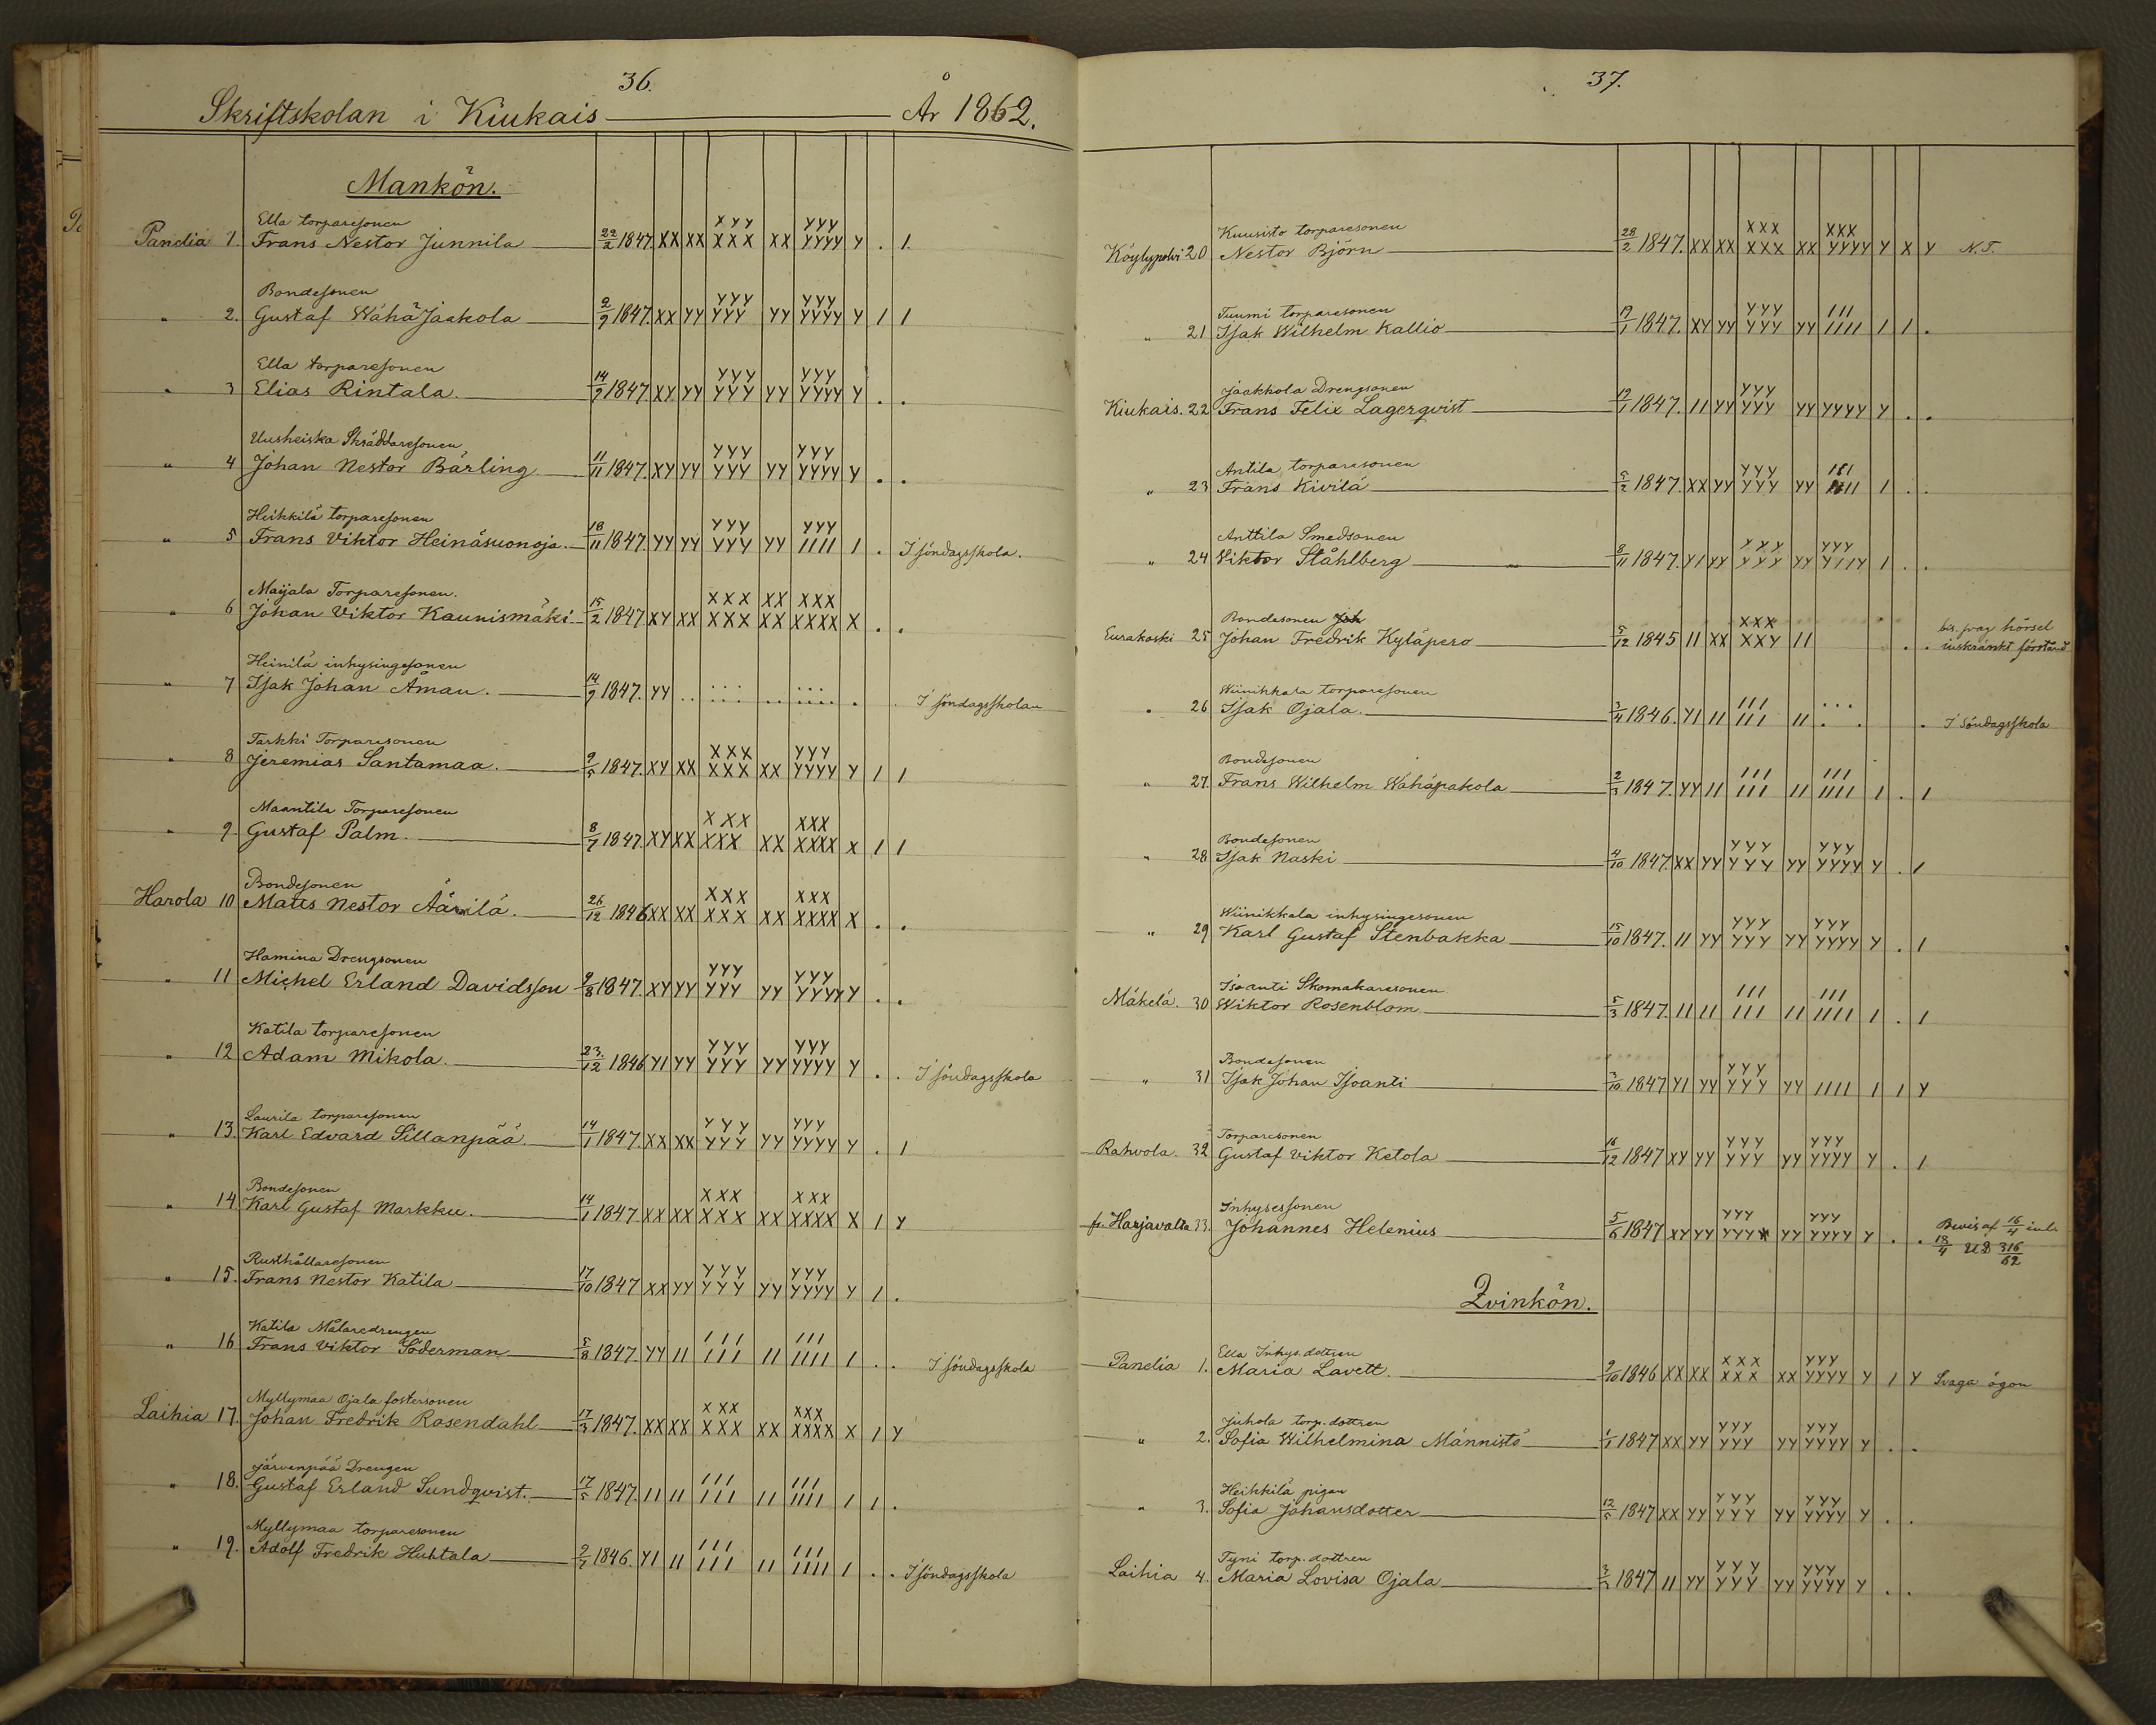 36.
Skriftskolan i Kiukais År 1862.
Mankön.
Ella torparesonen
Panelia 1. Frans Nestor Junnila 22/2 1847. XX XX XYY XXX XX YYY YYYY Y . 1.
Bondesonen
" 2. Gustaf Wähä Jaakola 2/9 1847. XX YY YYY YYY YY YYY YYYY Y 1 1
Ella torparesonen
" 3 Elias Rintala. 14/9 1847. XY YY YYY YYY YY YYY YYYY Y . .
Uusheiska Skräddaresonen
" 4 Johan Nestor Bärling 11/11 1847. XY YY YYY YYY YY YYY YYYY Y . .
Heikkilä torparesonen
" 5 Frans Viktor Heinäsuonoja. 18/11 1847. YY YY YYY YYY YY YYY 1111 1 . I söndagsskola.
Maijala Torparesonen.
" 6 Johan Viktor Kaunismäki 15/2 1847 XY XX XXX XXX XX XX XXX XXXX X . .
Heinilä inhysingesonen
" 7 Isak Johan Åman. 14/9 1847. YY .. ... ... .. ... .... . . I söndagsskolan
Tarkki Torparesonen
" 8 Jeremias Santamaa. 9/5 1847. XY XX XXX XXX XX YYY YYYY Y 1 1
Maantila Torparesonen
" 9 Gustaf Palm. 8/7 1847. XY XX XXX XXX XX XXX XXXX X 1 1
Bondesonen
Harola 10 Matts Nestor Äärilä. 26/12 1846 XX XX XXX XXX XX XXX XXXX X . .
Hamina Drengsonen
" 11 Michel Erland Davidsson 9/8 1847. XY YY YYY YYY YY YYY YYYY Y . .
Katila torparesonen
" 12 Adam Mikola. 23./12 1846 Y1 YY YYY YYY YY YYY YYYY Y . . I söndagsskola
Laurila torparesonen
" 13. Karl Edvard Sillanpää. 14/1 1847. XX XX YYY YYY YY YYY YYYY Y . 1
Bondesonen
" 14 Karl Gustaf Markku. 14/1 1847 XX XX XXX XXX XX XXX XXXX X 1 Y
Rusthållaresonen
" 15. Frans Nestor Katila 17/10 1847 XX YY YYY YYY YY YYY YYYY Y 1 .
Katila Målaredrengen
" 16 Frans Viktor Söderman 5/8 1847. YY 11 111 111 11 111 1111 1 . . I söndagsskola
Myllymaa Ojala fostersonen
Laihia 17. Johan Fredrik Rosendahl 17/3 1847. XX XX XXX XXX XX XXX XXXX X 1 Y
Järvenpää Drengen
" 18. Gustaf Erland Sundqvist. 17/5 1847. 11 11 111 111 11 111 1111 1 1 .
Myllymaa torparesonen
" 19. Adolf Fredrik Huhtala 2/7 1846. Y1 11 111 111 11 111 1111 1 . . I söndagsskola
37.
Kuusisto torparesonen
Köylypolvi 20 Nestor Björn 28/2 1847. XX XX XXX XXX XX XXX YYYY Y X Y N.T.
Tuumi torparesonen
" 21 Isak Wilhelm Kallio 19/1 1847. XY YY YYY YYY YY 111 1111 1 1 .
Jaakkola Drengsonen
Kiukais. 22 Frans Felix Lagerqvist 19/1 1847. 11 YY YYY YYY YY YYYY Y . .
Antila torparesonen
" 23 Frans Kivilä 5/2 1847. XX YY YYY YYY YY 111 1111 1 . .
Anttila Smedsonen
" 24 Wiktor Ståhlberg 8/11 1847. Y1 YY YYY YYY YY YYY Y11Y 1 . .
Bondesonen Joh
Eurakoski 25 Johan Fredrik Kyläpero 5/12 1845 11 XX XXX XXY 11 . . bis. svag hörsel
inskränkt förstånd
Wiinikkala torparesonen
" 26 Isak Ojala. 3/4 1846. Y1 11 111 111 11 ... . . . I Söndagsskola
Bondesonen
" 27. Frans Wilhelm Wähäpakola 2/3 1847. YY 11 111 111 11 111 1111 1 . 1
Bondesonen
" 28 Isak Naski 4/10 1847. XX YY YYY YYY YY YYY YYYY Y . 1
Wiinikkala inhysingesonen
" 29 Karl Gustaf Stenbakka 15/10 1847. 11 YY YYY YYY YY YYY YYYY Y . 1
Isoanti Skomakaresonen
Mäkelä. 30 Wiktor Rosenblom 5/3 1847. 11 11 111 111 11 111 1111 1 . 1
Bondesonen
" 31 Isak Johan Isoanti 3/10 1847 Y1 YY YYY YYY YY 1111 1 1 Y
Torparesonen
Rahvola. 32 Gustaf Viktor Ketola 16/12 1847 XY YY YYY YYY YY YYY YYYY Y . 1
Inhysessonen
fr. Harjavalta 33. Johannes Helenius 5/6 1847 XY YY YYY YYY YY YYY YYYY Y . . Bevis af 16/4 inl.
18/4 316/62
Qvinkön.
Ella Inhys. dottren
Panelia 1. Maria Lavett. 9/10 1846 XX XX XXX XXX XX YYY YYYY Y 1 Y Svaga ögon
Juhola torp. dottren
" 2. Sofia Wilhelmina Männistö 1/1 1847 XX YY YYY YYY YY YYY YYYY Y . .
Heikkilä pigan
" 3. Sofia Johansdotter 12/5 1847 XX YY YYY YYY YY YYY YYYY Y . .
Tyni torp. dottren
Laihia 4. Maria Lovisa Ojala 3/2 1847 11 YY YYY YYY YY YYY YYYY Y . .